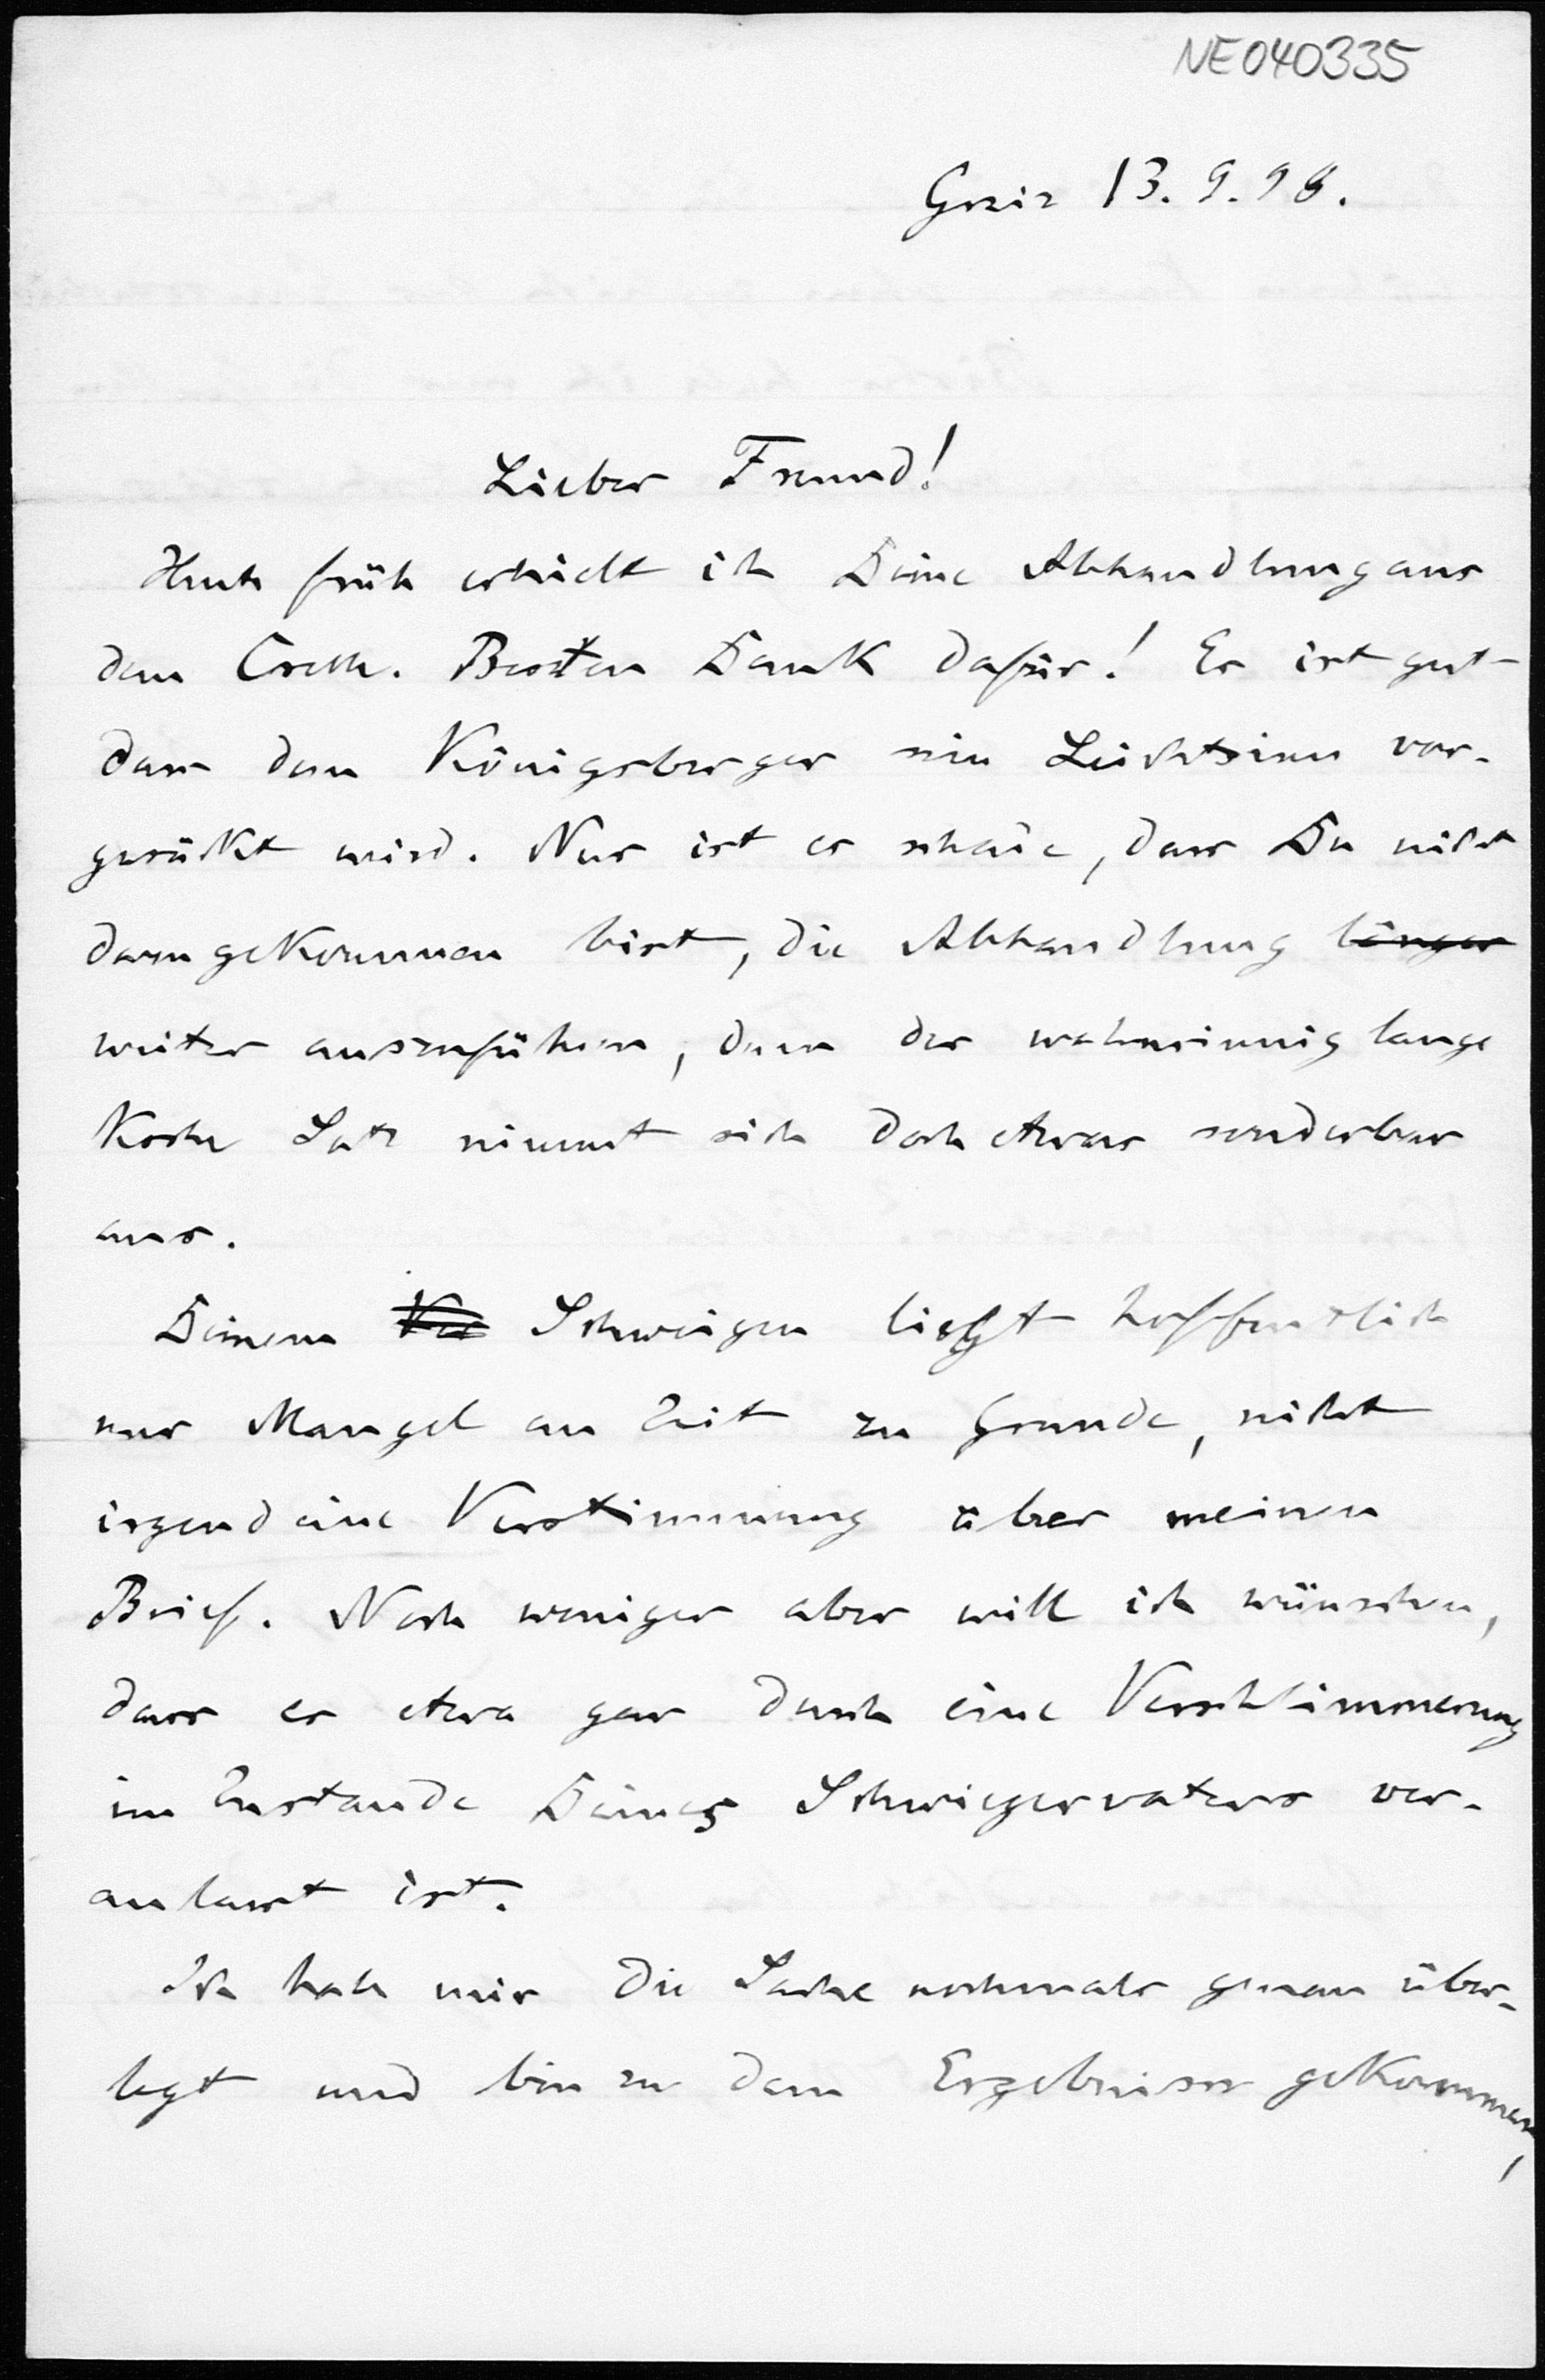 NE040335
Greiz 13. 9. 98.
Lieber Freund!
Heute früh erhielt ich Deine Abhandlung aus
dem Crelle. Besten Dank dafür! Es ist gut
dass dem Königsberger sein Leichtsinn vor-
gerückt wird. Nur ist es schade, dass Du nicht
dazu gekommen bist, die Abhandlung länger
weiter auszuführen, denn der wahnsinnig lange
Satz nimmt sich doch etwas sonderbar
aus.
Deinem Schweigen liegt hoffentlich
nur Mangel an Zeit zu Grunde, nicht
irgend eine Verstimmung über meinen
Brief. Noch weniger aber will ich wünschen,
dass es etwa gar durch eine Verschlimmerung
im Zustande Deines Schwiegervaters ver-
anlasst ist.
Ich habe mir die Sache nochmals genau über-
legt und bin zu dem Ergebnisse gekommen,